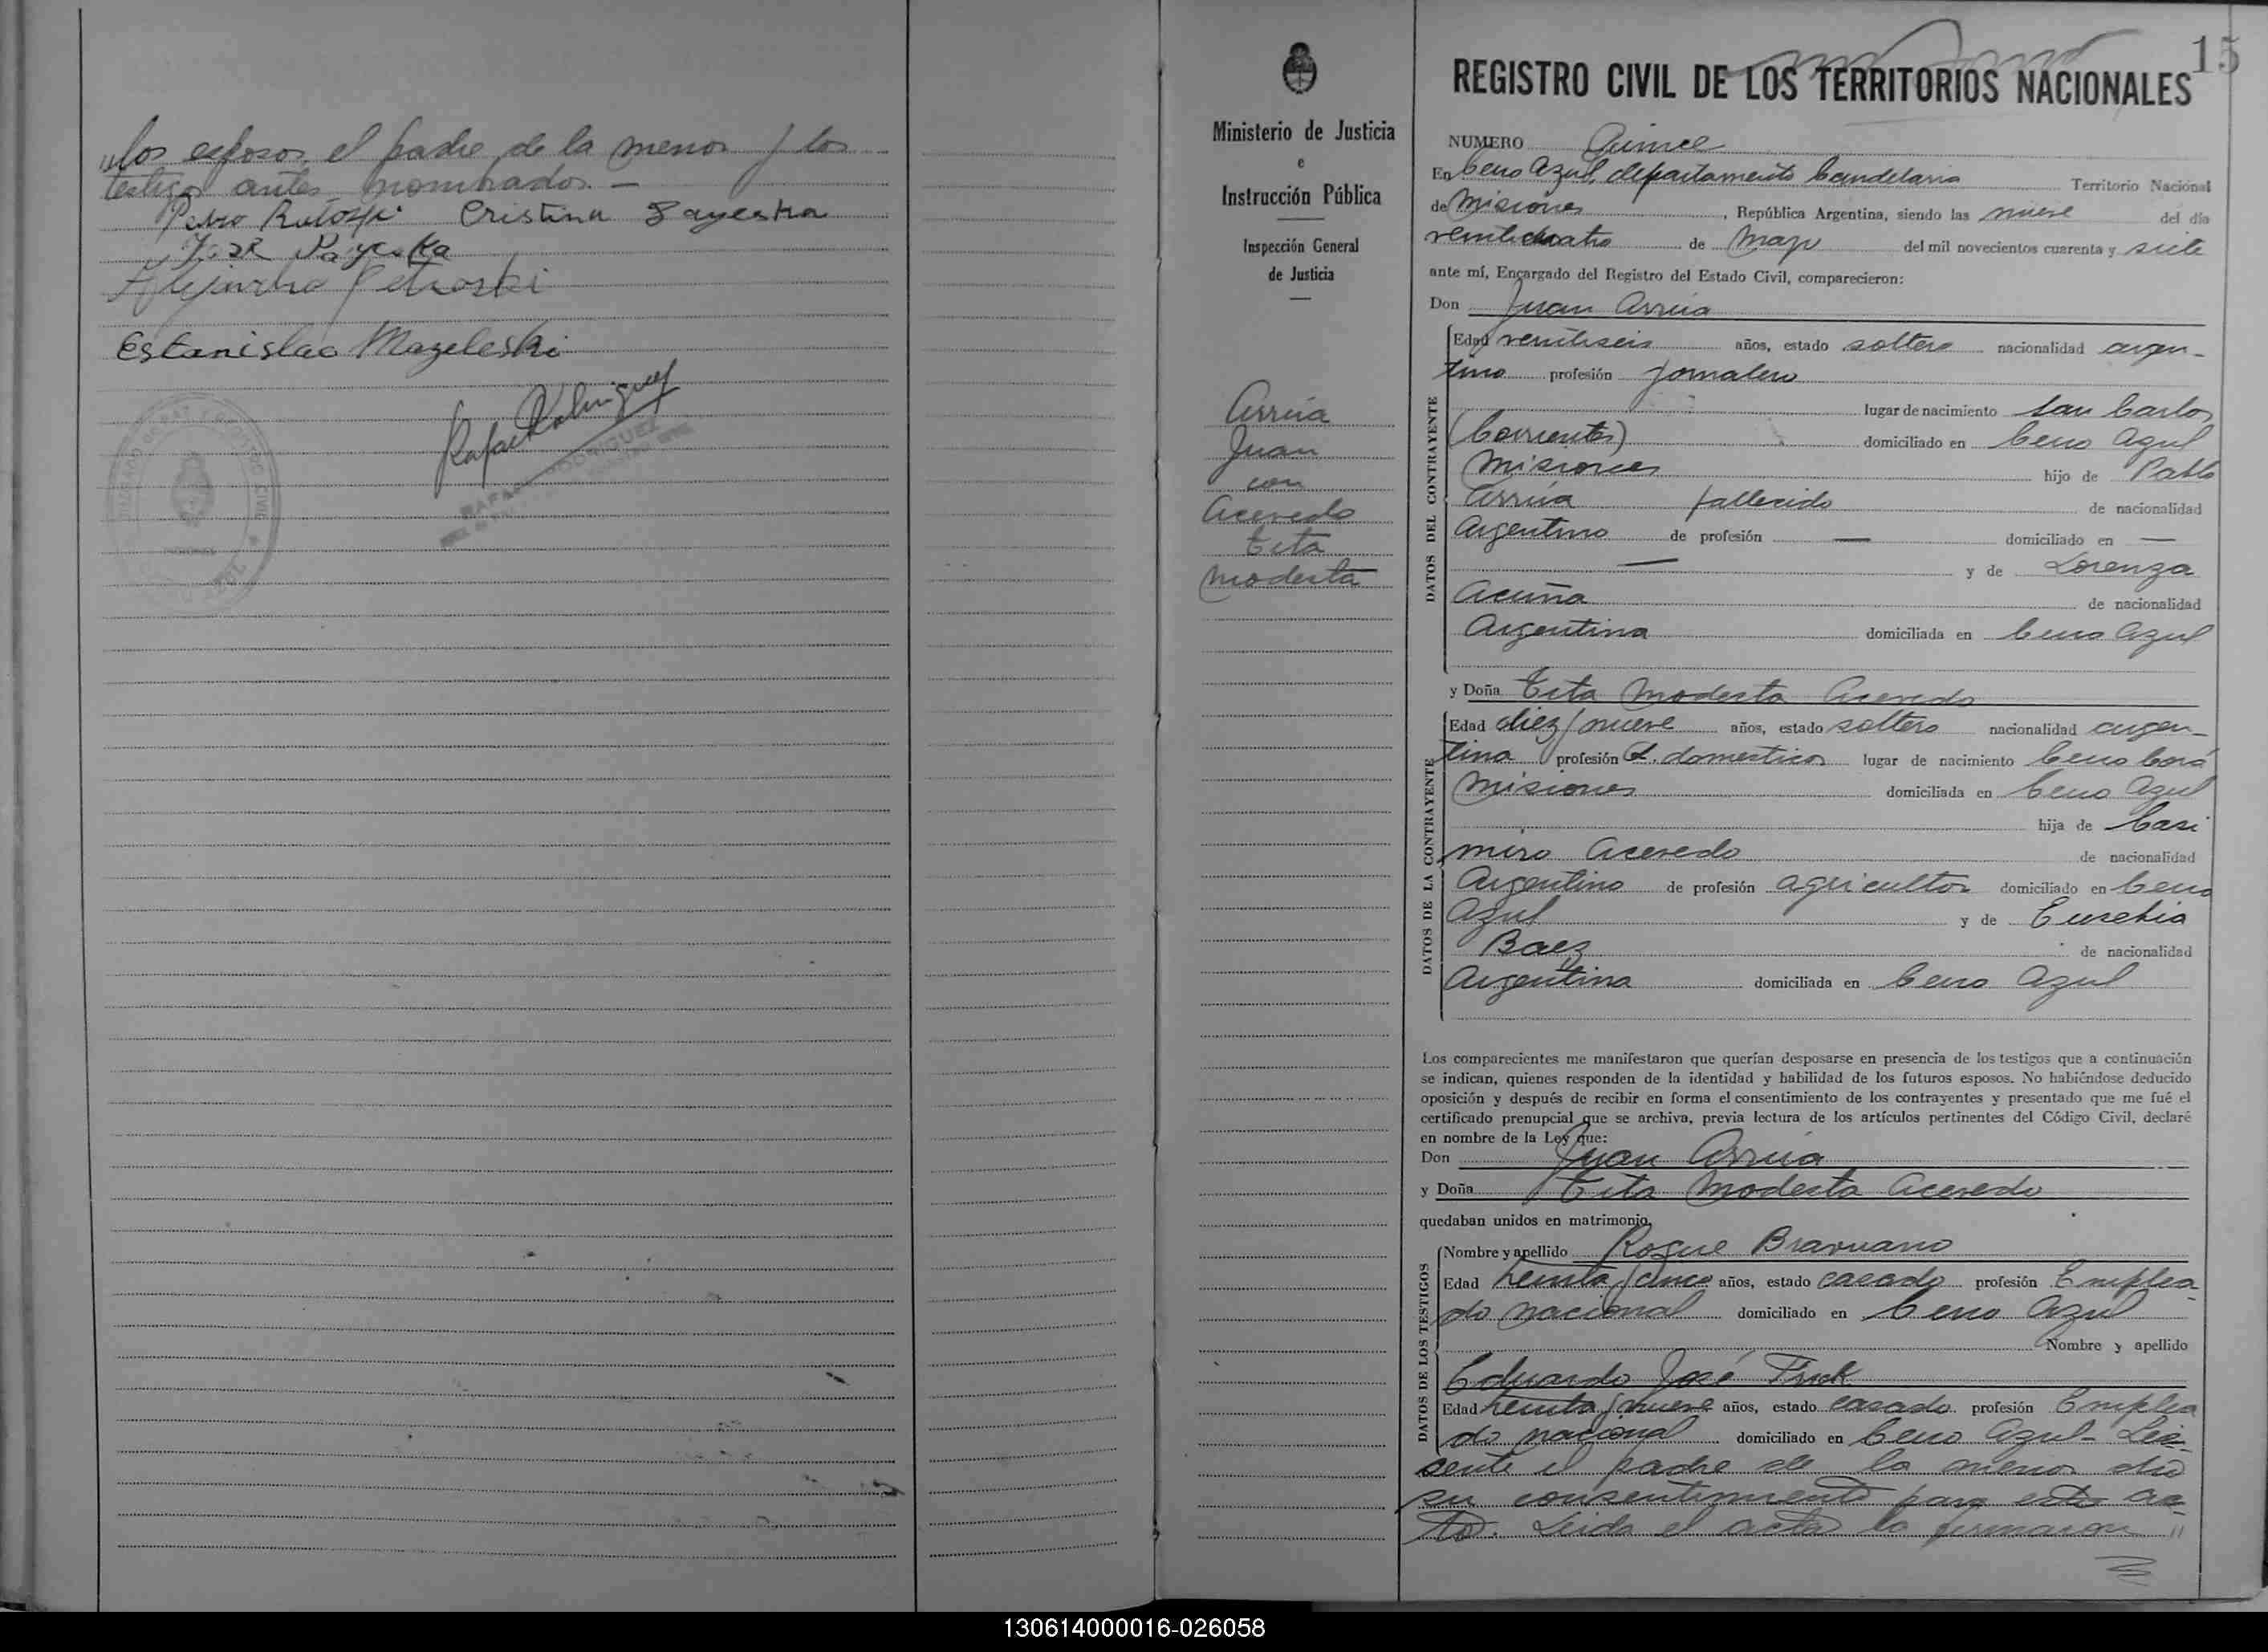 " los esposos, el padre de la menor y los
testigos antes nombrados. —
Pedro Cristina
José
Alejandro Petroski
Estanislao Mazeleski
Rafael Rodriguez
RAFAEL RODRIGUEZ
REGISTRO CIVIL
15
Ministerio de Justicia
e
Instrucción Pública
Inspección General
de Justicia
Arrúa
Juan
con
Acevedo
Tita
Modesta
REGISTRO CIVIL DE LOS TERRITORIOS NACIONALES
NUMERO Quince
En Cerro Azul, departamento Candelaria Territorio Nacional
de Misiones, República Argentina, siendo las nueve del día
veinticuatro de Mayo del mil novecientos cuarenta y siete
ante mí, Encargado del Registro del Estado Civil, comparecieron:
Don Juan Arrúa
DATOS DEL CONTRAYENTE
Edad veintiseis años, estado soltero nacionalidad argen-
tino profesión Jornalero
lugar de nacimiento San Carlos
(Corrientes) domiciliado en Cerro Azul
Misiones hijo de Pablo
Arrúa fallecido de nacionalidad
Argentino de profesión — domiciliado en —
— y de Lorenza
Acuña de nacionalidad
Argentina domiciliada en Cerro Azul
y Doña Tita Modesta Acevedo
DATOS DE LA CONTRAYENTE
Edad diez y nueve años, estado soltera nacionalidad argen-
tina profesión Q. domesticos lugar de nacimiento Cerro Corá
Misiones domiciliada en Cerro Azul
hija de Casi
miro Acevedo de nacionalidad
Argentino de profesión agricultor domiciliado en Cerro
Azul y de Eusebia
Baez de nacionalidad
Argentina domiciliada en Cerro Azul
Los comparecientes me manifestaron que querían desposarse en presencia de los testigos que a continuación
se indican, quienes responden de la identidad y habilidad de los futuros esposos. No habiéndose deducido
oposición y después de recibir en forma el consentimiento de los contrayentes y presentado que me fué el
certificado prenupcial que se archiva, previa lectura de los artículos pertinentes del Código Civil, declaré
en nombre de la Ley que:
Don Juan Arrúa
y Doña Tita Modesta Acevedo
quedaban unidos en matrimonio.
DATOS DE LOS TESTIGOS
Nombre y apellido Roque
Edad treinta y cinco años, estado casado profesión Emplea
do nacional domiciliado en Cerro Azul
Nombre y apellido
Eduardo José
Edad treinta y nueve años, estado casado profesión Emplea
do nacional domiciliado en Cerro Azul -
sente el padre de la menor dió
su consentimiento para este ac
to. Leida el acta la firmaron "
130614000016-026058